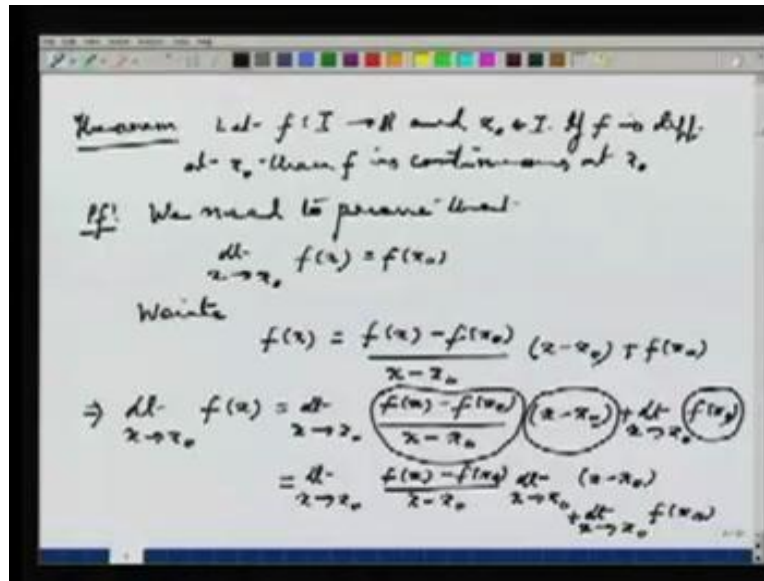 Theorem Let f : I → R and x₀ ∈ I. If f is diff.
at x₀ then f is continuous at x₀
Pf: We need to prove that
lt x→x₀ f(x) = f(x₀)
Write
f(x) = (f(x) - f(x₀))/(x - x₀) (x - x₀) + f(x₀)
⇒ lt x→x₀ f(x) = lt x→x₀ (f(x) - f(x₀))/(x - x₀) (x - x₀) + lt x→x₀ f(x₀)
= lt x→x₀ (f(x) - f(x₀))/(x - x₀) lt x→x₀ (x - x₀)
+ lt x→x₀ f(x₀)